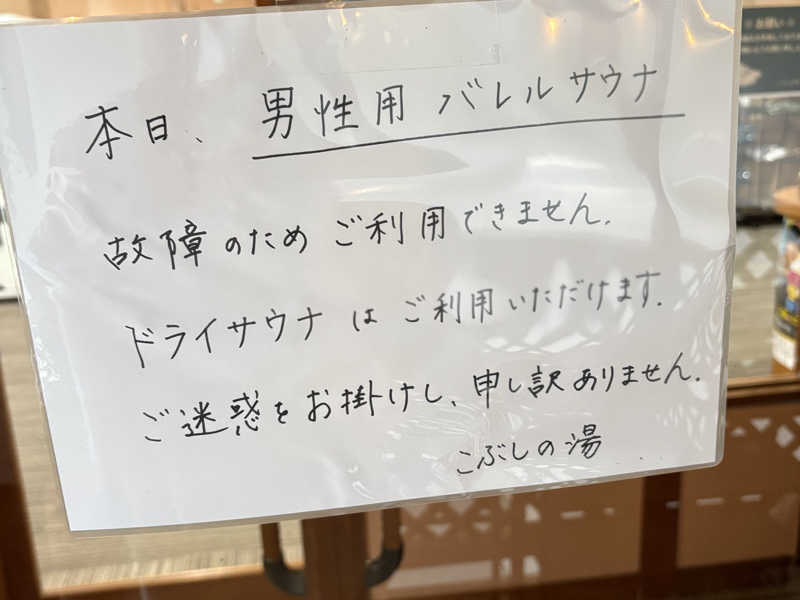 本日、男性用バレルサウナ
故障のためご利用できません.
ドライサウナはご利用いただけます.
ご迷惑をお掛けし、申し訳ありません.
こぶしの湯
お願い